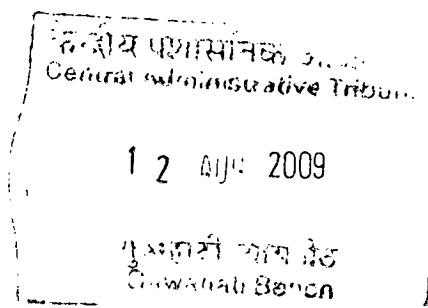 केन्द्रीय प्रशासनिक
Central Administrative
1 2 2009
गुवाहाटी न्याय पीठ
Guwahati Bench